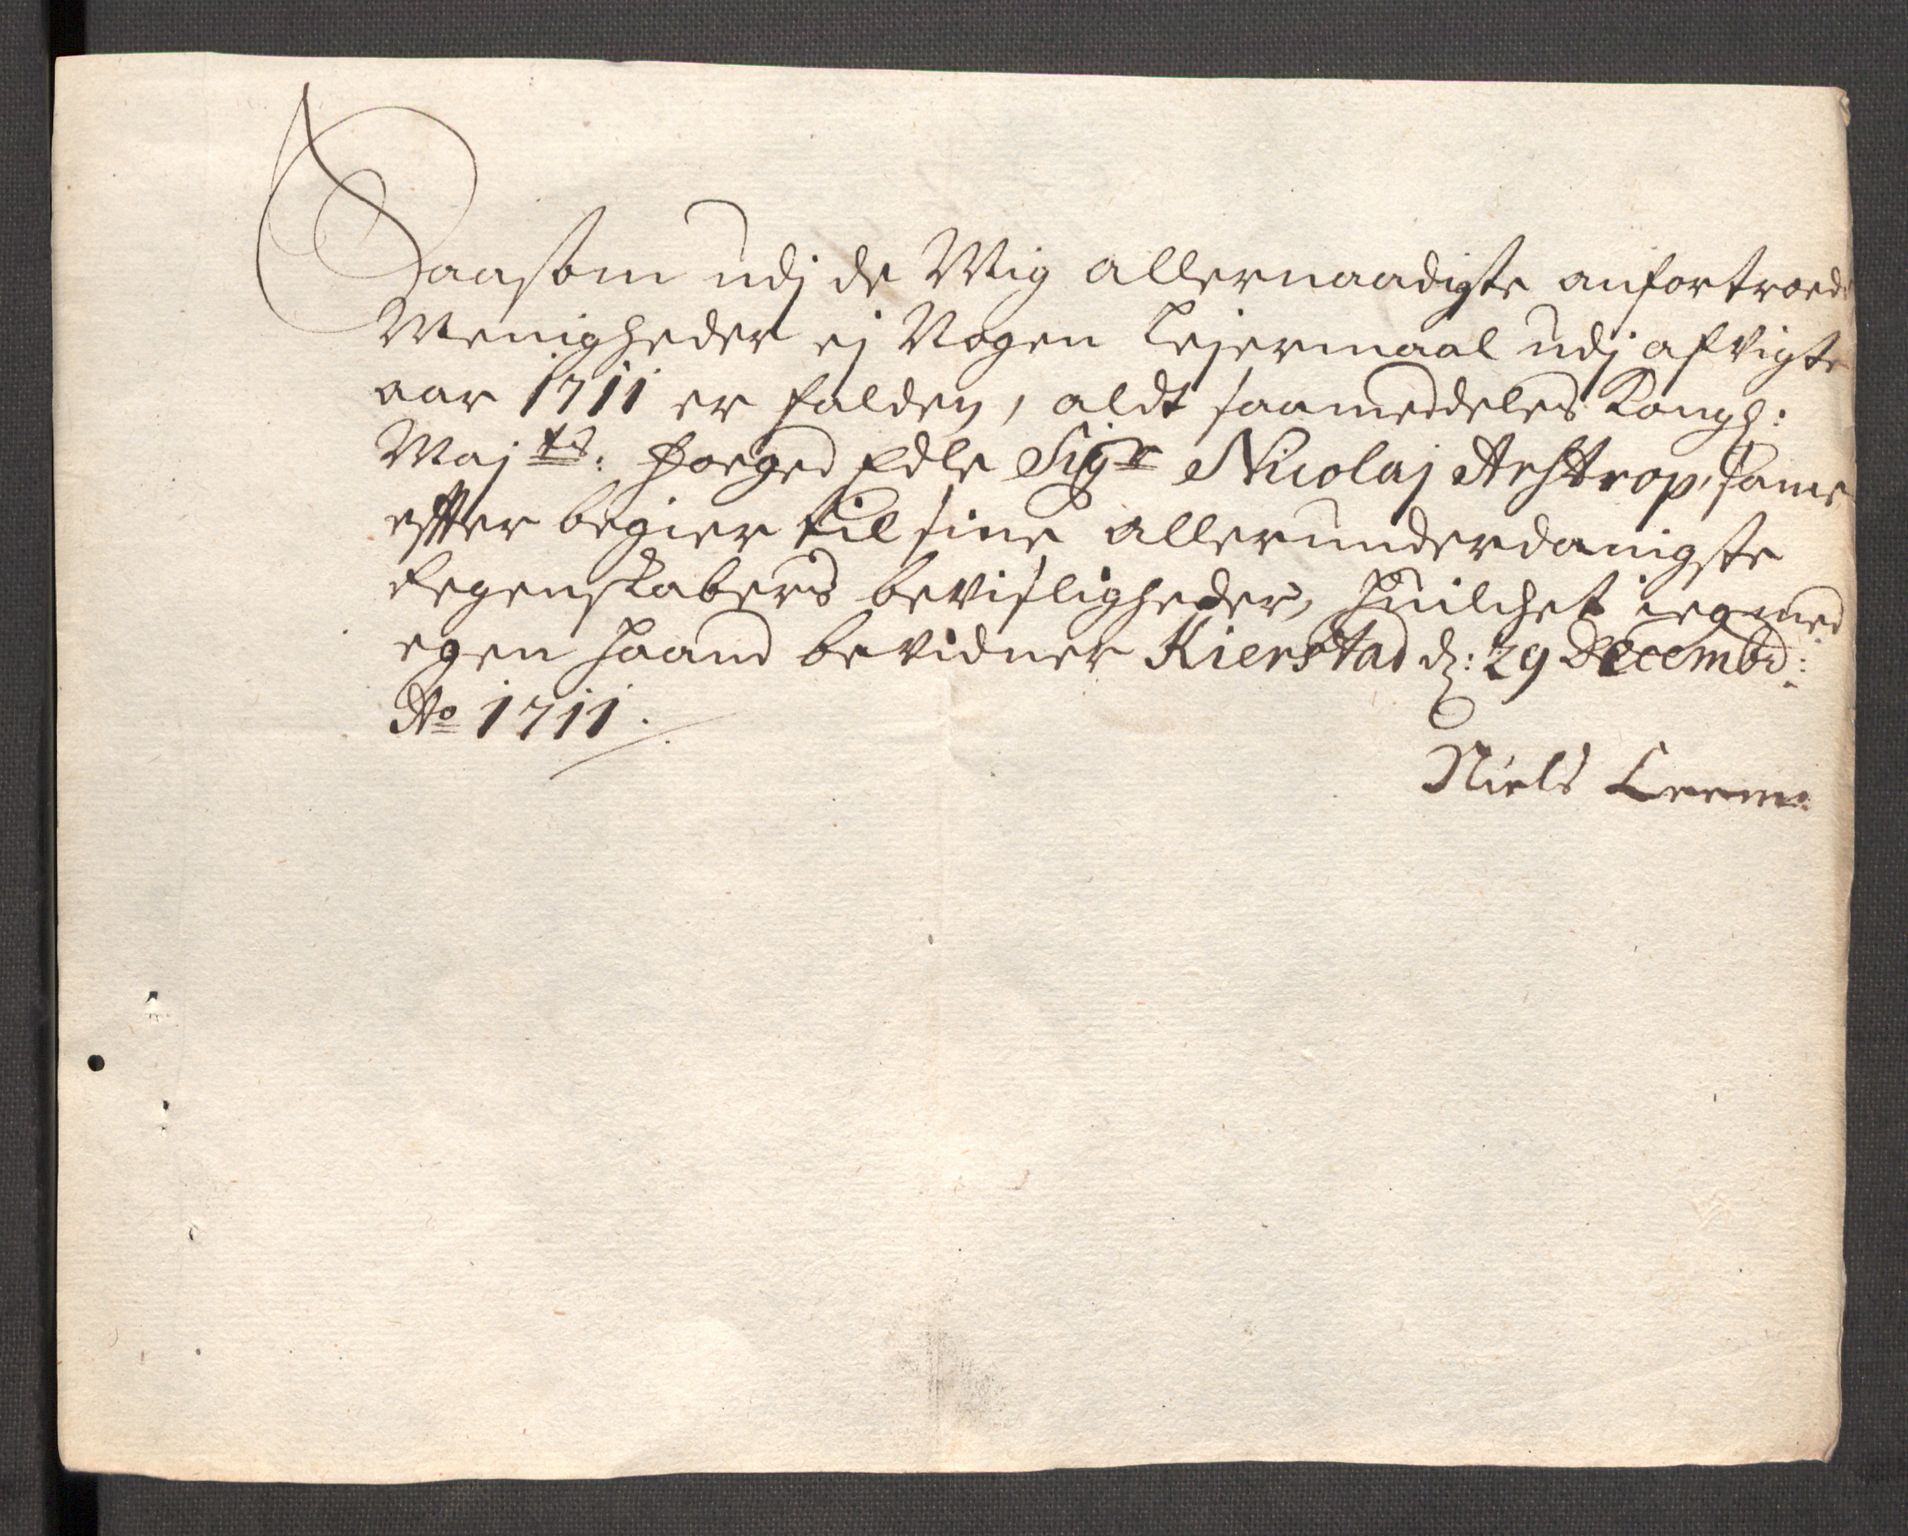 Saasom udj de Mig allernaadigste anfortroede
Menigheder ej Nogen Lejermaal udj afvigte
aar 1711 er falden, aldt saa meddeles Kongl:
Maj ts: foeged Edle Sigr Nicolaj Astrop, same
effter begier til sine allerunderdanigste
Regenskabers bevisligheder, Huilchet ieg med
egen haand bevidner Kierstad d: 29 Decembr:
Ao 1711.
Niels Leem: